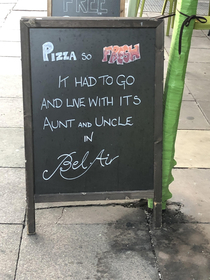 FREE
PIZZA SO FRESH
IT HAD TO GO
AND LIVE WITH ITS
AUNT AND UNCLE
IN
Bel Air